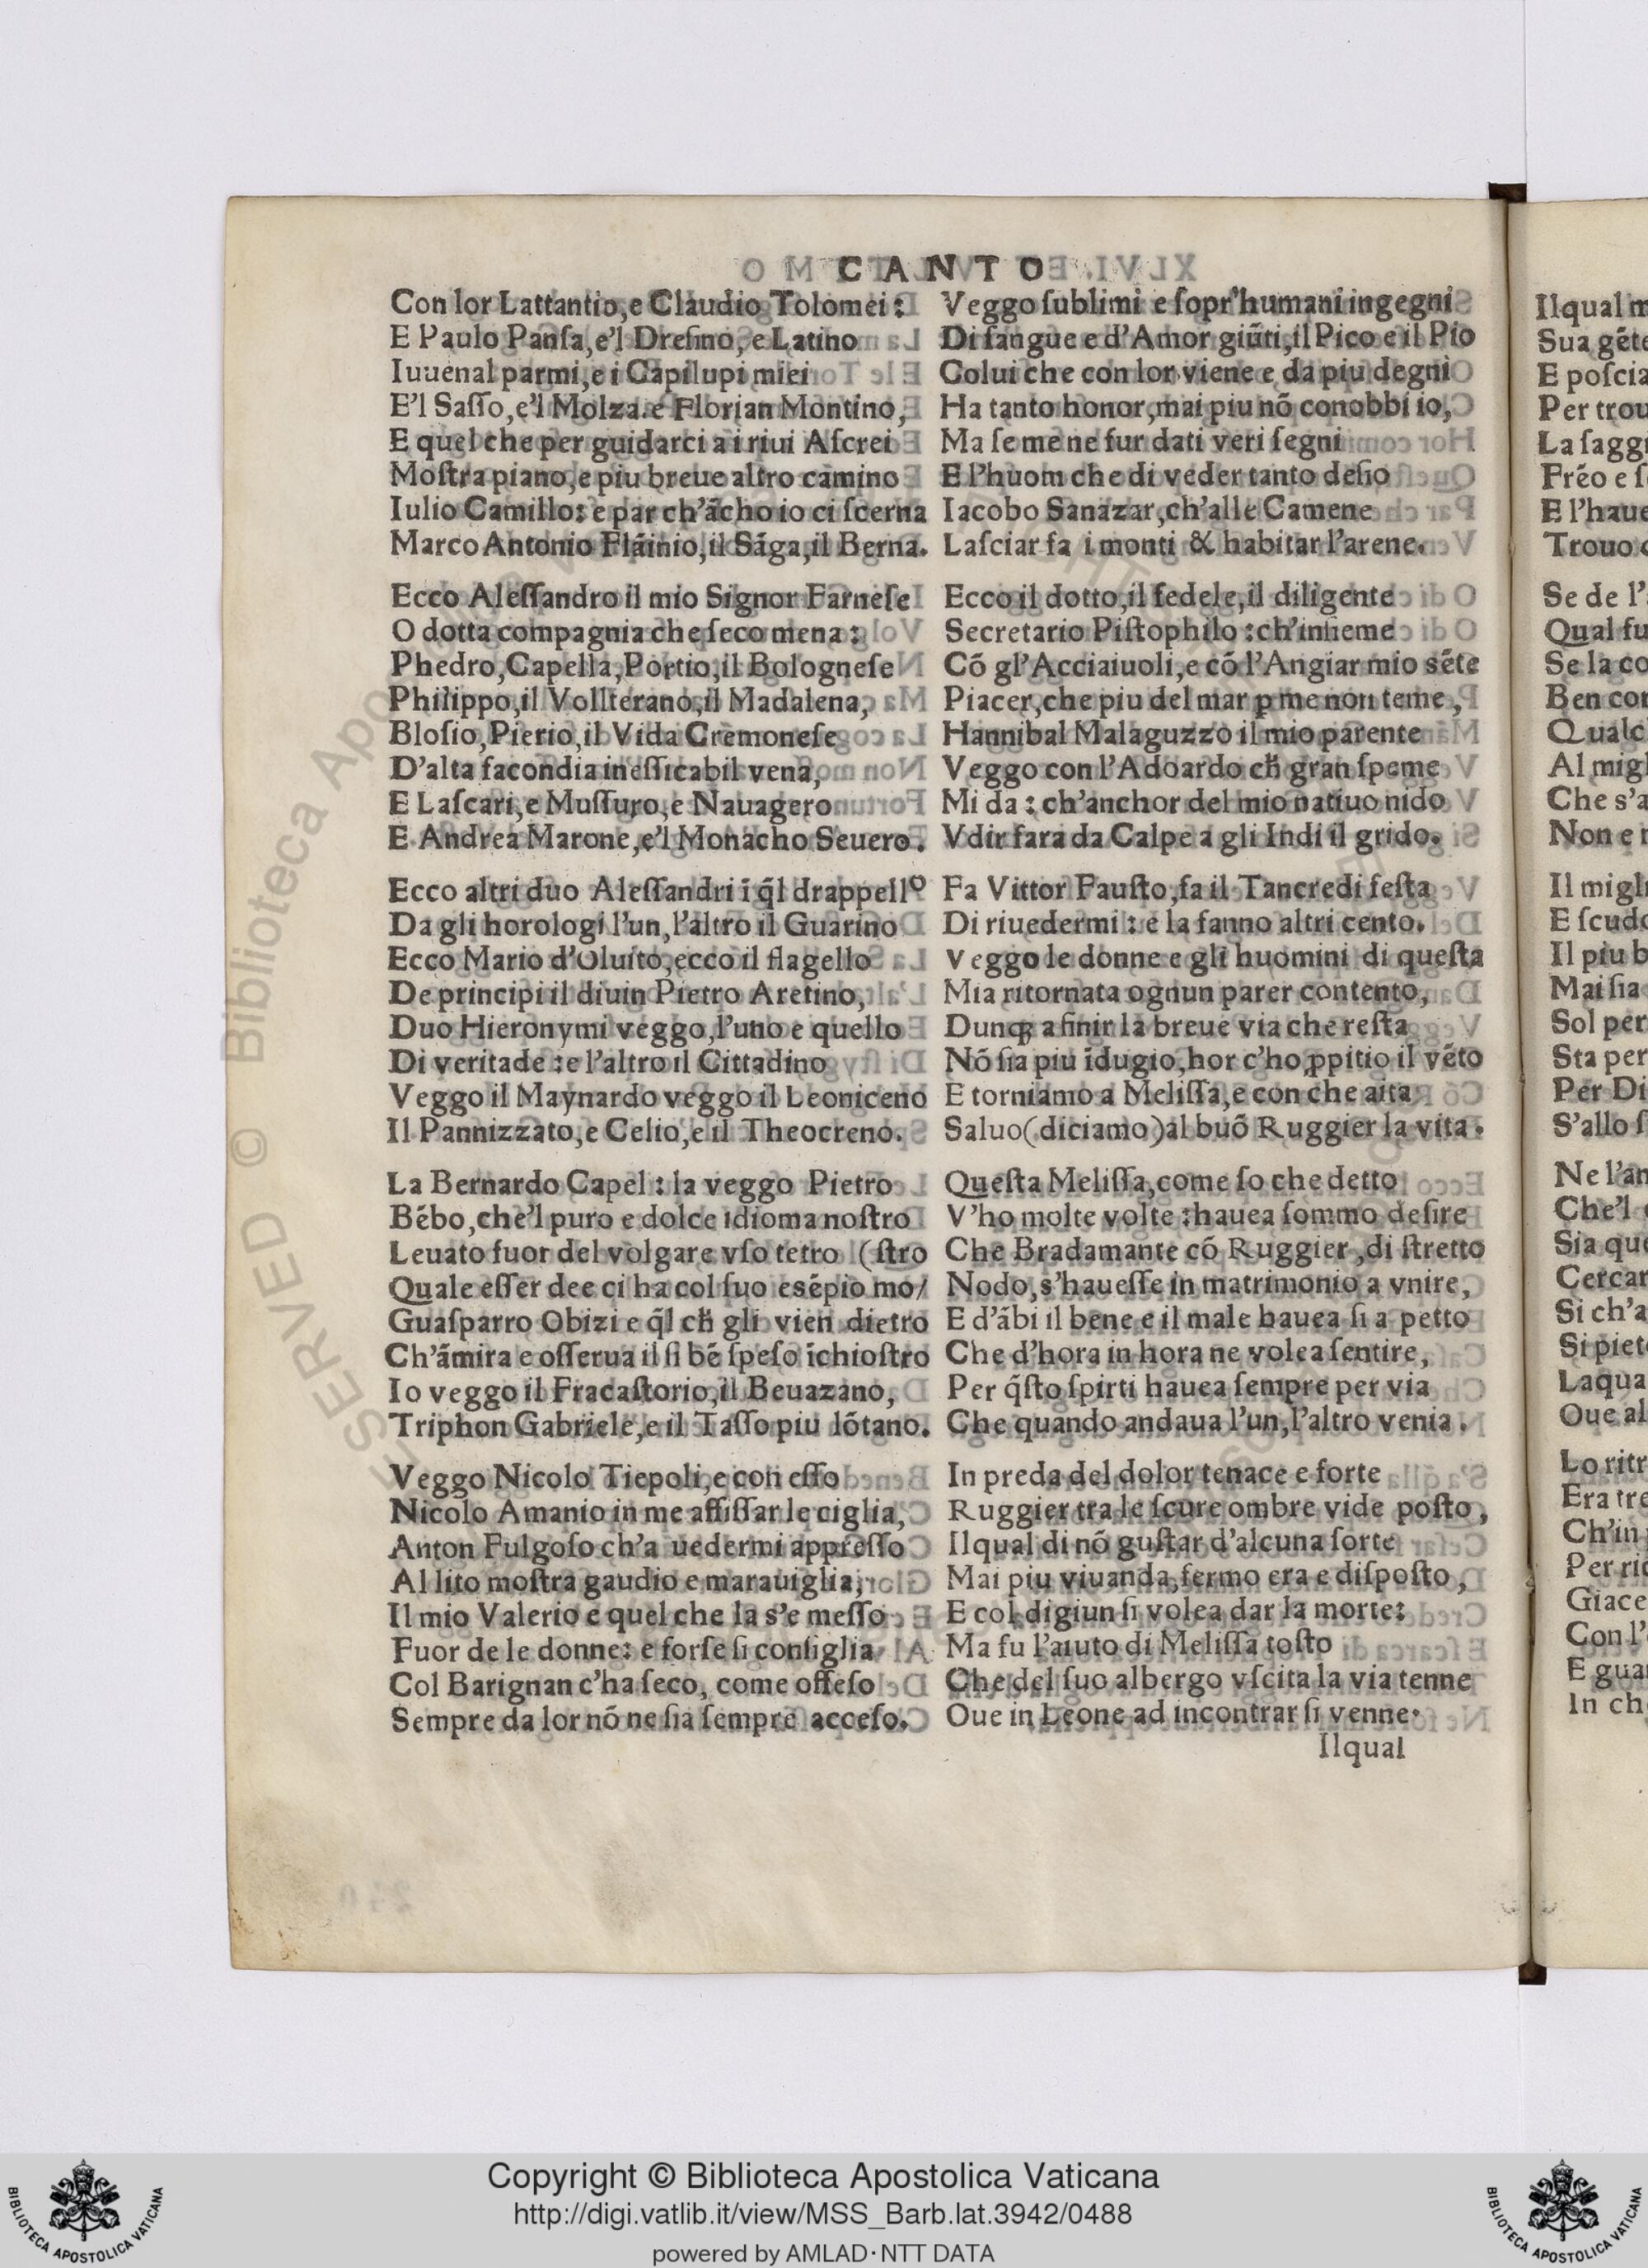 CANTO
Con lor Lattantio,e Claudio Tolomei:
E Paulo Panſa,e'l Dreſino,e Latino
Iuuenal parmi,e i Capilupi miei
E'l Saſſo,e'l Molza.e Florian Montino,
E quel che per guidarci a i riui Aſcrei
Moſtra piano,e piu breue altro camino
Iulio Camillo:e par ch'ãcho io ci ſcerna
Marco Antonio Fláinio,il Sãga,il Berna.
Ecco Aleſſandro il mio Signor Farneſe
O dotta compagnia che ſeco mena:
Phedro,Capella,Portio,il Bologneſe
Philippo,il Vollterano,il Madalena,
Bloſio,Pierio,il Vida Cremoneſe
D'alta facondia ineſſicabil vena,
E Laſcari,e Muſſuro,e Nauagero
E Andrea Marone,e'l Monacho Seuero.
Ecco altri duo Aleſſandri ĩ q̃l drappello
Da gli horologi l'un,l'altro il Guarino
Ecco Mario d'Oluito,ecco il flagello
De principi il diuin Pietro Aretino,
Duo Hieronymi veggo,l'uno e quello
Di veritade:e l'altro il Cittadino
Veggo il Maynardo veggo il Leoniceno
Il Pannizzato,e Celio,e il Theocreno.
La Bernardo Capel:la veggo Pietro
Bẽbo,che'l puro e dolce idioma noſtro
Leuato fuor del volgare vſo tetro (ſtro
Quale eſſer dee ci ha col ſuo esẽpio mo/
Guaſparro Obizi e q̃l ch̃ gli vien dietro
Ch'ãmira e oſſerua il ſi bẽ ſpeſo ĩchioſtro
Io veggo il Fracaſtorio,il Beuazano,
Triphon Gabriele,e il Taſſo piu lõtano.
Veggo Nicolo Tiepoli,e con eſſo
Nicolo Amanio in me affiſſar le ciglia,
Anton Fulgoſo ch'a uedermi appreſſo
Al lito moſtra gaudio e marauiglia,
Il mio Valerio e quel che la s'e meſſo
Fuor de le donne:e forſe ſi conſiglia
Col Barignan c'ha ſeco, come offeſo
Sempre da lor nõ ne ſia ſempre acceſo.
Veggo ſublimi e ſopr'humani ingegni
Di ſangue e d'Amor giũti,il Pico e il Pio
Colui che con lor viene e da piu degni
Ha tanto honor,mai piu nõ conobbi io,
Ma ſe me ne fur dati veri ſegni
E l'huom che di veder tanto deſio
Iacobo Sanazar,ch'alle Camene
Laſciar fa i monti & habitar l'arene.
Ecco il dotto,il fedele,il diligente
Secretario Piſtophilo:ch'inſieme
Cõ gl'Acciaiuoli,e cõ l'Angiar mio sẽte
Piacer,che piu del mar ꝑ me non teme,
Hannibal Malaguzzo il mio parente
Veggo con l'Adoardo ch̃ gran ſpeme
Mi da:ch'anchor del mio natiuo nido
Vdir fara da Calpe a gli Indi il grido.
Fa Vittor Fauſto,fa il Tancredi feſta
Di riuedermi:e la fanno altri cento.
Veggo le donne e gli huomini di queſta
Mia ritornata ognun parer contento,
Dunqꝫ a finir la breue via che reſta
Nõ ſia piu ĩdugio,hor c'ho ꝓpitio il vẽto
E torniamo a Meliſſa,e con che aita
Saluo(diciamo)al buõ Ruggier la vita.
Queſta Meliſſa,come ſo che detto
V'ho molte volte:hauea ſommo deſire
Che Bradamante cõ Ruggier,di ſtretto
Nodo,s'haueſſe in matrimonio a vnire,
E d'ãbi il bene e il male hauea ſi a petto
Che d'hora in hora ne volea ſentire,
Per q̃ſto ſpirti hauea ſempre per via
Che quando andaua l'un,l'altro venia.
In preda del dolor tenace e forte
Ruggier tra le ſcure ombre vide poſto,
Ilqual di nõ guſtar d'alcuna ſorte
Mai piu viuanda,fermo era e diſpoſto,
E col digiun ſi volea dar la morte:
Ma fu l'aiuto di Meliſſa toſto
Che del ſuo albergo vſcita la via tenne
Oue in Leone ad incontrar ſi venne.
Ilqual
Ilqual
Sua gẽte
E poſcia
Per trou
La ſaggi
Frẽo e
E l'haue
Trouo
Se de l'
Qual fu
Se la co
Ben con
Qualc
Al migl
Che s'a
Non e
Il migl
E ſcudo
Il piu b
Mai ſia
Sol per
Sta per
Per Di
S'allo
Ne l'an
Che'l
Sia que
Cercar
Si ch'a
Si piet
Laqua
Oue al
Lo ritr
Era tre
Ch'in
Per ri
Giace
Con l'
E gua
In ch
RESERVED © Biblioteca Apo
Copyright © Biblioteca Apostolica Vaticana
http://digi.vatlib.it/view/MSS_Barb.lat.3942/0488
powered by AMLAD·NTT DATA
BIBLIOTECA APOSTOLICA VATICANA
BIBLIOTECA APOSTOLICA VATICANA